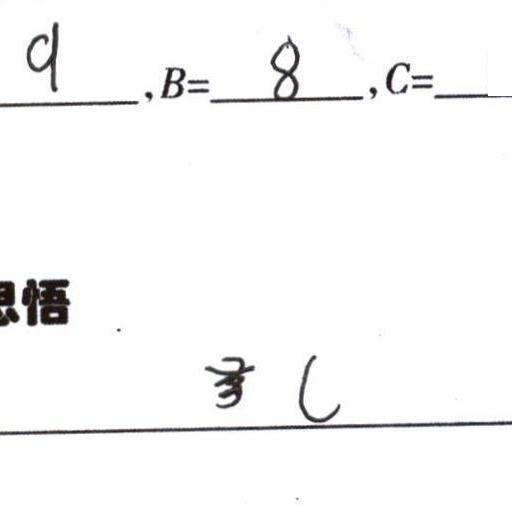 9 , B= 8 , C=
思悟